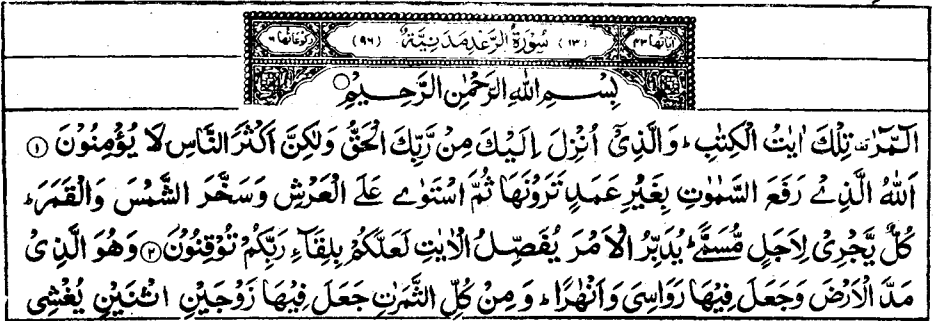 اٰیَاتُهَا ۴۳ (۱۳) سُوْرَةُ الرَّعْدِ مَدَنِیَّةٌ (۹۶) رُکُوْعَاتُهَا ۶
بِسْمِ اللّٰهِ الرَّحْمٰنِ الرَّحِیْمِ
الٓمّٓرٰ تِلْكَ اٰیٰتُ الْكِتٰبِ ؕ وَالَّذِیْۤ اُنْزِلَ اِلَیْكَ مِنْ رَّبِّكَ الْحَقُّ وَلٰكِنَّ اَكْثَرَ النَّاسِ لَا یُؤْمِنُوْنَ ۱
اَللّٰهُ الَّذِیْ رَفَعَ السَّمٰوٰتِ بِغَیْرِ عَمَدٍ تَرَوْنَهَا ثُمَّ اسْتَوٰی عَلَی الْعَرْشِ وَسَخَّرَ الشَّمْسَ وَالْقَمَرَ ؕ
كُلٌّ یَّجْرِیْ لِاَجَلٍ مُّسَمًّی ؕ یُدَبِّرُ الْاَمْرَ یُفَصِّلُ الْاٰیٰتِ لَعَلَّكُمْ بِلِقَآءِ رَبِّكُمْ تُوْقِنُوْنَ ۲ وَهُوَ الَّذِیْ
مَدَّ الْاَرْضَ وَجَعَلَ فِیْهَا رَوَاسِیَ وَاَنْهٰرًا ؕ وَمِنْ كُلِّ الثَّمَرٰتِ جَعَلَ فِیْهَا زَوْجَیْنِ اثْنَیْنِ یُغْشِی